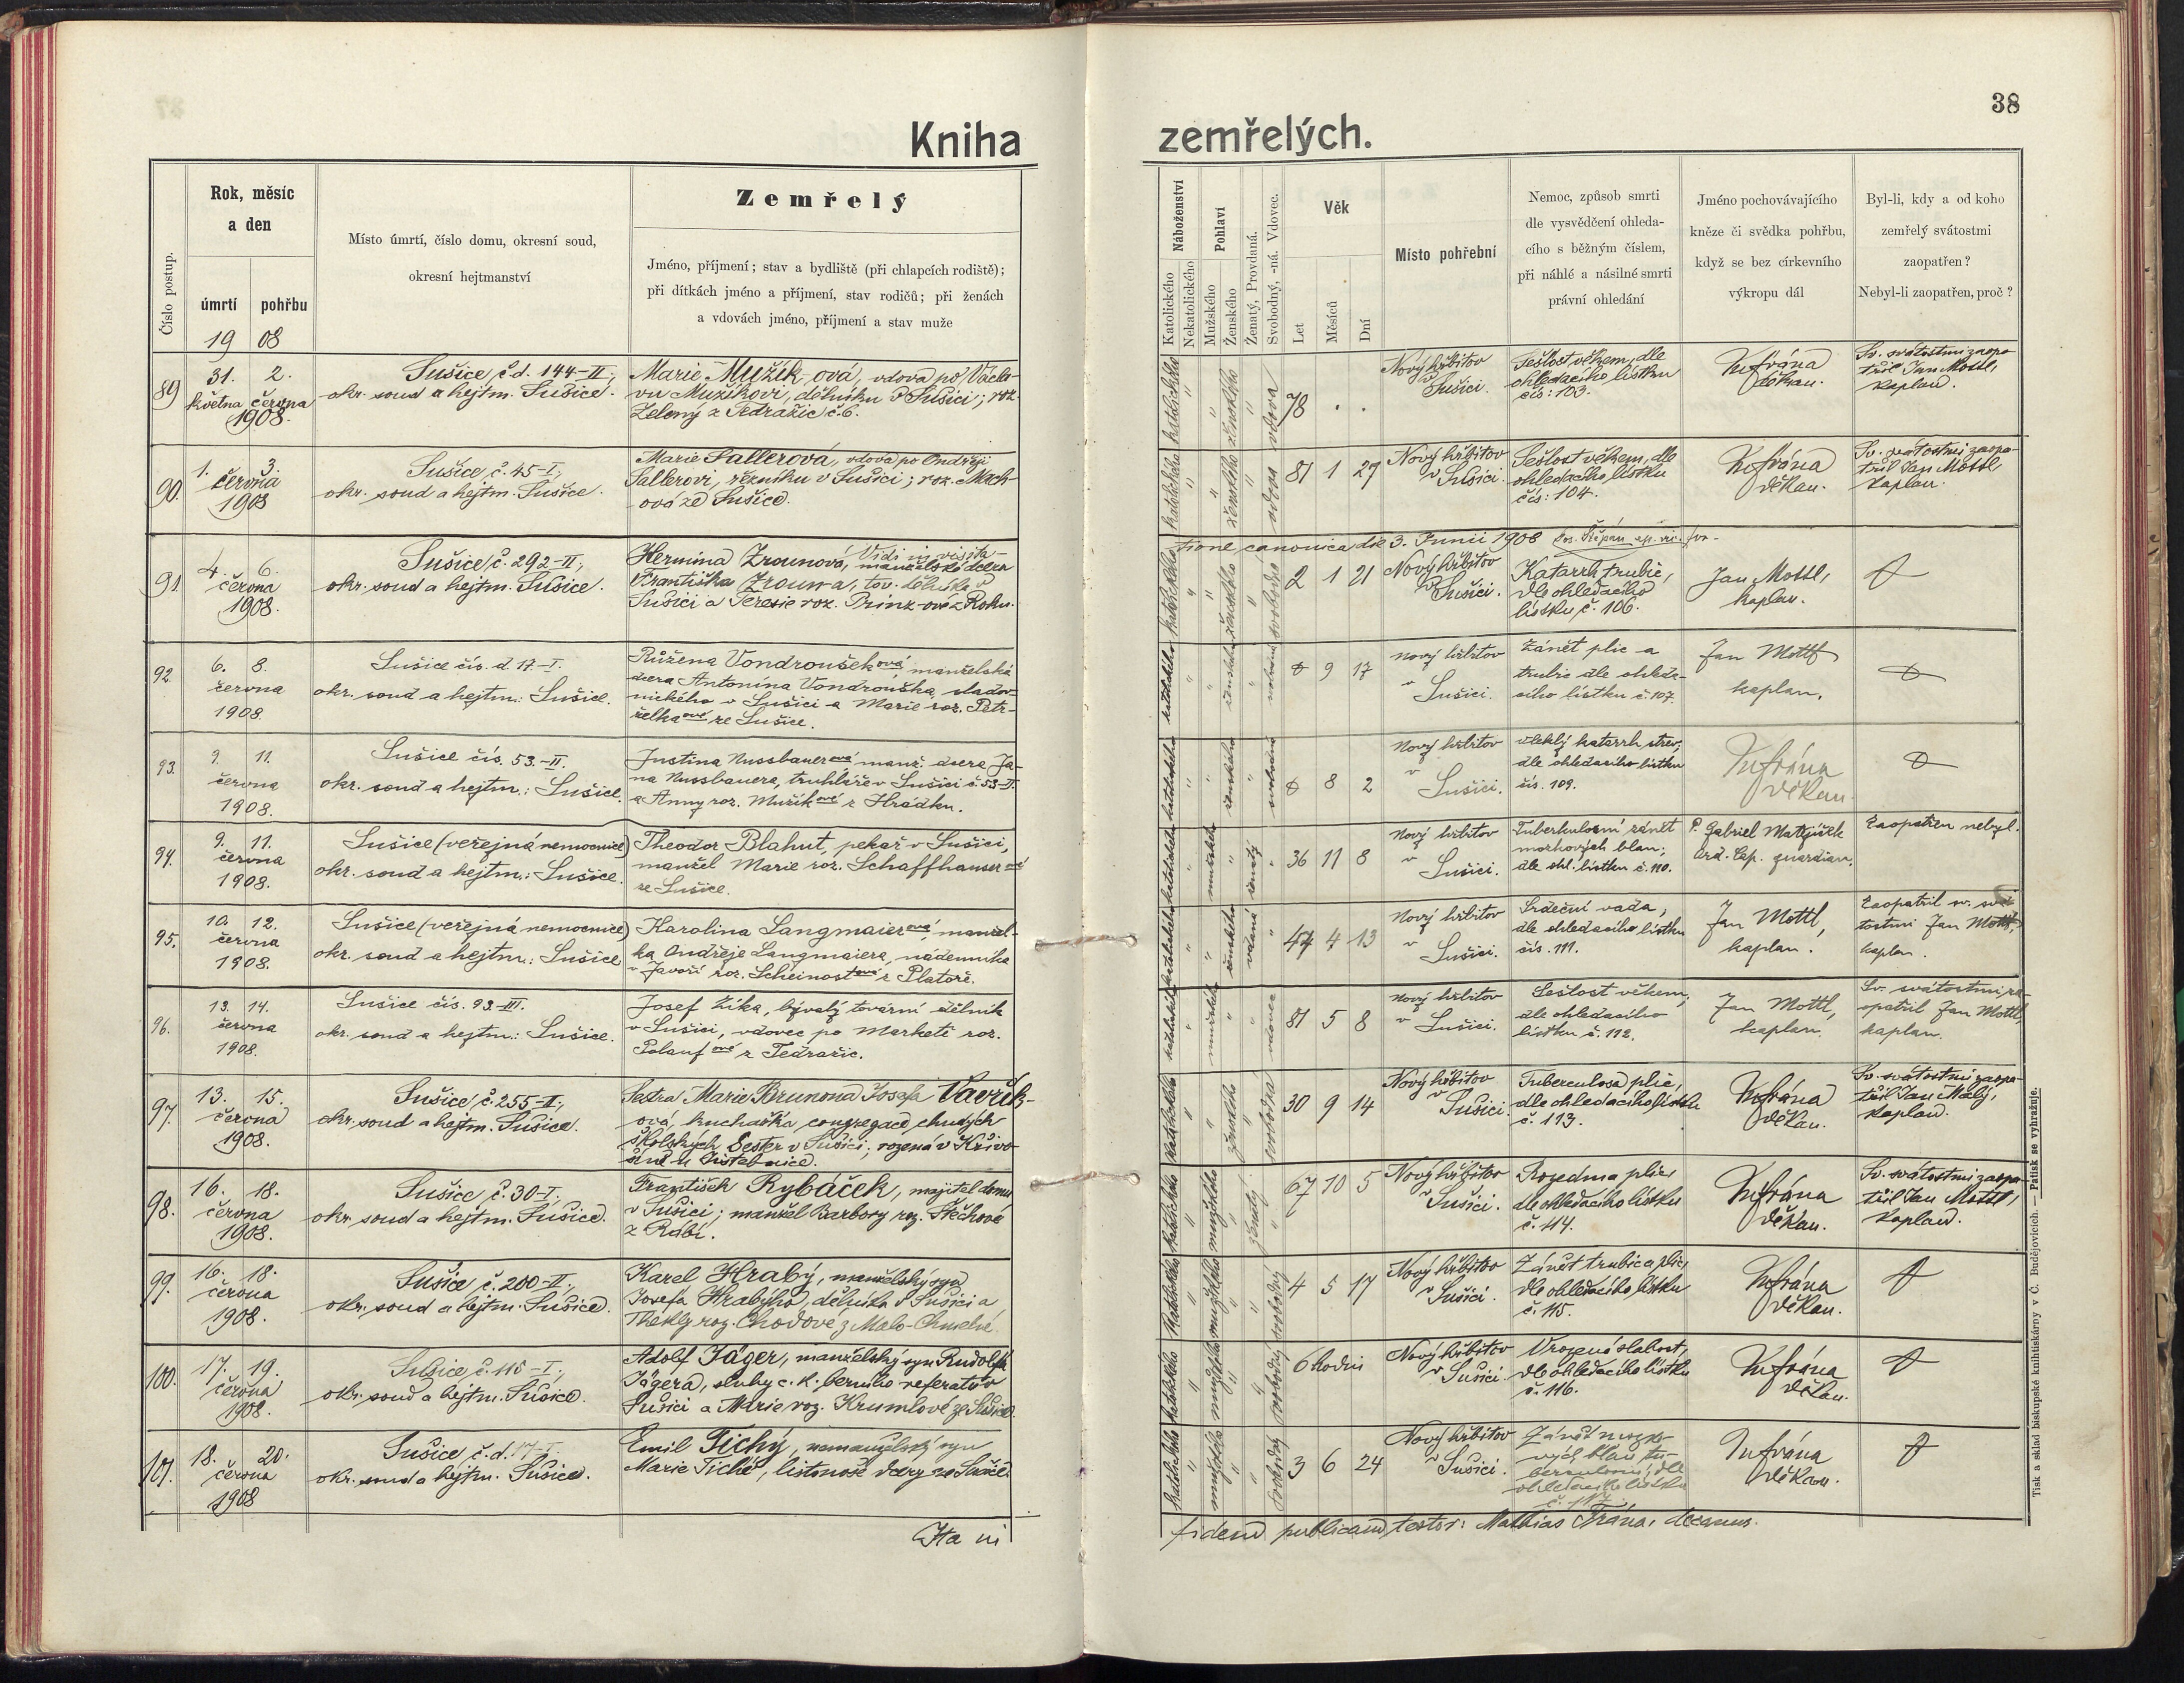 38
Kniha zemřelých.
Číslo postup.
Rok, měsíc
a den
úmrtí pohřbu
19 08
Místo úmrtí, číslo domu, okresní soud,
okresní hejtmanství
Zemřelý
Jméno, příjmení; stav a bydliště (při chlapcích rodiště);
při dítkách jméno a příjmení, stav rodičů; při ženách
a vdovách jméno, příjmení a stav muže
Náboženství
Katolického
Nekatolického
Pohlaví
Mužského
Ženského
Ženatý, Provdaná.
Svobodný, -ná. Vdovec.
Věk
Let
Měsíců
Dní
Místo pohřební
Nemoc, způsob smrti
dle vysvědčení ohleda-
cího s běžným číslem,
při náhlé a násilné smrti
právní ohledání
Jméno pochovávajícího
kněze či svědka pohřbu,
když se bez církevního
výkropu dál
Byl-li, kdy a od koho
zemřelý svátostmi
zaopatřen?
Nebyl-li zaopatřen, proč?
89)
31. 2.
května června
1908.
Sušice č.d. 144-II.,
okr. soud a hejtm. Sušice.
Marie Mužík-ová, vdova po Václa-
vu Mužíkovi, dělníku v Sušici; roz.
Zelený z Tedražic č. 6.
katolického " " ženského " vdova
78 . .
Nový hřbitov
v Sušici.
Sešlost věkem, dle
ohledacího lístku
čís: 103.
Mt. Frána
děkan.
Sv. svátostmi zaopa-
třil Jan Mottl,
kaplan.
90.
1. 3.
června
1908
Sušice, č. 45-I.,
okr. soud a hejtm. Sušice.
Marie Sallerová, vdova po Ondřeji
Sallerovi, řezníku v Sušici; roz. Mach-
ová ze Sušice.
katolického " " ženského vdova
81 1 29
Nový hřbitov
v Sušici.
Sešlost věkem, dle
ohledacího lístku
čís: 104.
Mt. Frána
děkan.
Sv. svátostmi zaopa-
třil Jan Mottl,
kaplan.
Vidi in visita-
tione canonica die 3. Junii 1908
91.
4. 6.
června
1908.
Sušice, č. 292-II.,
okr. soud a hejtm. Sušice.
Hermina Zrounová, manželská dcera
Františka Zrouna, tov. dělníka v
Sušici a Terezie roz. Prinz-ové z Roku.
katolického " " ženského " svobodná
2 1 21
Nový hřbitov
v Sušici.
Katarrh trubic,
dle ohledacího
lístku č. 106.
Jan Mottl,
kaplan.
92.
6. 8.
června
1908.
Sušice čís. d. 17-I.
okr. soud a hejtm.: Sušice.
Růžena Vondroušková, manželská
dcera Antonína Vondrouška, sladov-
nického v Sušici a Marie roz. Petr-
želkaové ze Sušice.
katolického " " ženského " svobodná
9 17
Nový hřbitov
v Sušici.
Zánět plic a
trubic dle ohleda-
cího lístku č. 107.
Jan Mottl
kaplan.
93.
9. 11.
června
1908.
Sušice čís. 53.-II.
okr. soud a hejtm.: Sušice.
Justina Nussbauerová manž. dcera Ja-
na Nussbauera, truhláře v Sušici č. 53-II.
a Anny roz. Mužíkové z Hrádku.
katolického " " ženského " svobodná
8 2
Nový hřbitov
v
Sušici.
vleklý katarrh střev;
dle ohledacího lístku
čís. 109.
Mt. Frána
děkan.
94.
9. 11.
června
1908.
Sušice (veřejná nemocnice)
okr. soud a hejtm.: Sušice.
Theodor Blahut, pekař v Sušici,
manžel Marie roz. Schaffhauserové
ze Sušice.
katolického " mužského " ženatý "
36 11 8
Nový hřbitov
v
Sušici.
Tuberkulosní zánět
mozkových blan;
dle ohl. lístku č. 110.
P. Gabriel Matějíček
Ord. Cap. guardian.
Zaopatřen nebyl.
95.
10. 12.
června
1908.
Sušice (veřejná nemocnice)
okr. soud a hejtm.: Sušice
Karolina Langmaierová, manžel-
ka Ondřeje Langmaiera, nádenníka
v Javoří roz. Scheinostové z Platoře.
katolického " " ženského vdaná "
44 4 13
Nový hřbitov
v
Sušici.
Srdeční vada;
dle ohledacího lístku
čís. 111.
Jan Mottl,
kaplan.
Zaopatřil sv. svá-
tostmi Jan Mottl,
kaplan.
96.
13. 14.
června
1908.
Sušice čís. 93-III.
okr. soud a hejtm.: Sušice.
Josef Žíka, bývalý tovární dělník
v Sušici, vdovec po Markétě roz.
Polaufové z Tedražic.
katolického " mužského " " vdovec
81 5 8
Nový hřbitov
v Sušici.
Sešlost věkem,
dle ohledacího
lístku č. 112.
Jan Mottl,
kaplan.
Sv. svátostmi za-
opatřil Jan Mottl,
kaplan.
97.
13. 15.
června
1908.
Sušice, č. 255-II.,
okr. soud a hejtm. Sušice.
Sestra Marie Brunona Josefa Vavřík-
ová, kuchařka congregace chudých
školských Sester v Sušici; rozená v Křivo-
šíně u Jistebnice.
katolického " " ženského " svobodná
30 9 14
Nový hřbitov
v Sušici.
Tuberculosa plic,
dle ohledacího lístku
č. 113.
Mt. Frána
děkan.
Sv. svátostmi zaopa-
třil Jan Malý,
kaplan.
98.
16. 18.
června
1908.
Sušice, č. 30-I.,
okr. soud a hejtm. Sušice.
František Rybáček, majitel domu
v Sušici; manžel Barbory roz. Štěchové
z Rábí.
katolického " mužského " ženatý "
67 10 5
Nový hřbitov
v Sušici.
Rozedma plic,
dle ohledacího lístku
č. 114.
Mt. Frána
děkan.
Sv. svátostmi zaopa-
třil Jan Mottl,
kaplan.
99.
16. 18.
června
1908.
Sušice, č. 200-II.,
okr. soud a hejtm. Sušice.
Karel Hrabý, manželský syn
Josefa Hrabýho, dělníka v Sušici a
Thekly roz. Chodové z Malo-Chmelné.
katolického " mužského " " svobodný
4 5 17
Nový hřbitov
v Sušici.
Zánět trubic a plic,
dle ohledacího lístku
č. 115.
Mt. Frána
děkan.
100.
17. 19.
června
1908.
Sušice č. 115-I.,
okr. soud a hejtm. Sušice.
Adolf Jäger, manželský syn Rudolfa
Jägera, sluhy c. k. berního referátu v
Sušici a Marie roz. Krumlové ze Sušice.
katolického " mužského " " svobodný
6 hodin
Nový hřbitov
v Sušici.
Vrozená slabost,
dle ohledacího lístku
č. 116.
Mt. Frána
děkan.
101.
18. 20.
června
1908
Sušice, č.d. 17-I.
okr. soud a hejtm. Sušice.
Emil Tichý, nemanželský syn
Marie Tiché, listonoše dcery ze Sušice.
katolického " mužského " " svobodný
3 6 24
Nový hřbitov
v Sušici.
Zánět mozko-
vých blan tu-
berculosní, dle
ohledacího lístku
č. 117.
Mt. Frána
děkan.
Ita in
fidem publicam testor: Mathias Frána, decanus.
Tisk a sklad biskupské knihtiskárny v Č. Budějovicích. — Patisk se vyhražuje.